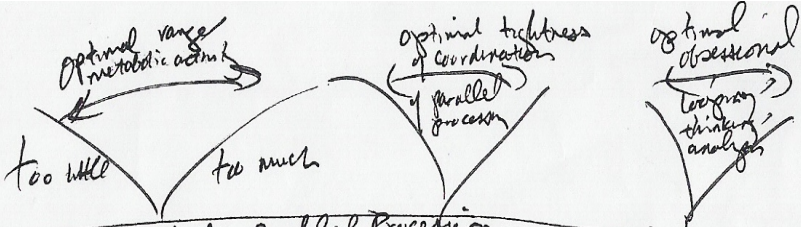 optimal range
metabolic activity
too little
too much
optimal tightness
of coordination
of parallel
processors
optimal
obsessional
looping
thinking
analysis
Parallel Processing